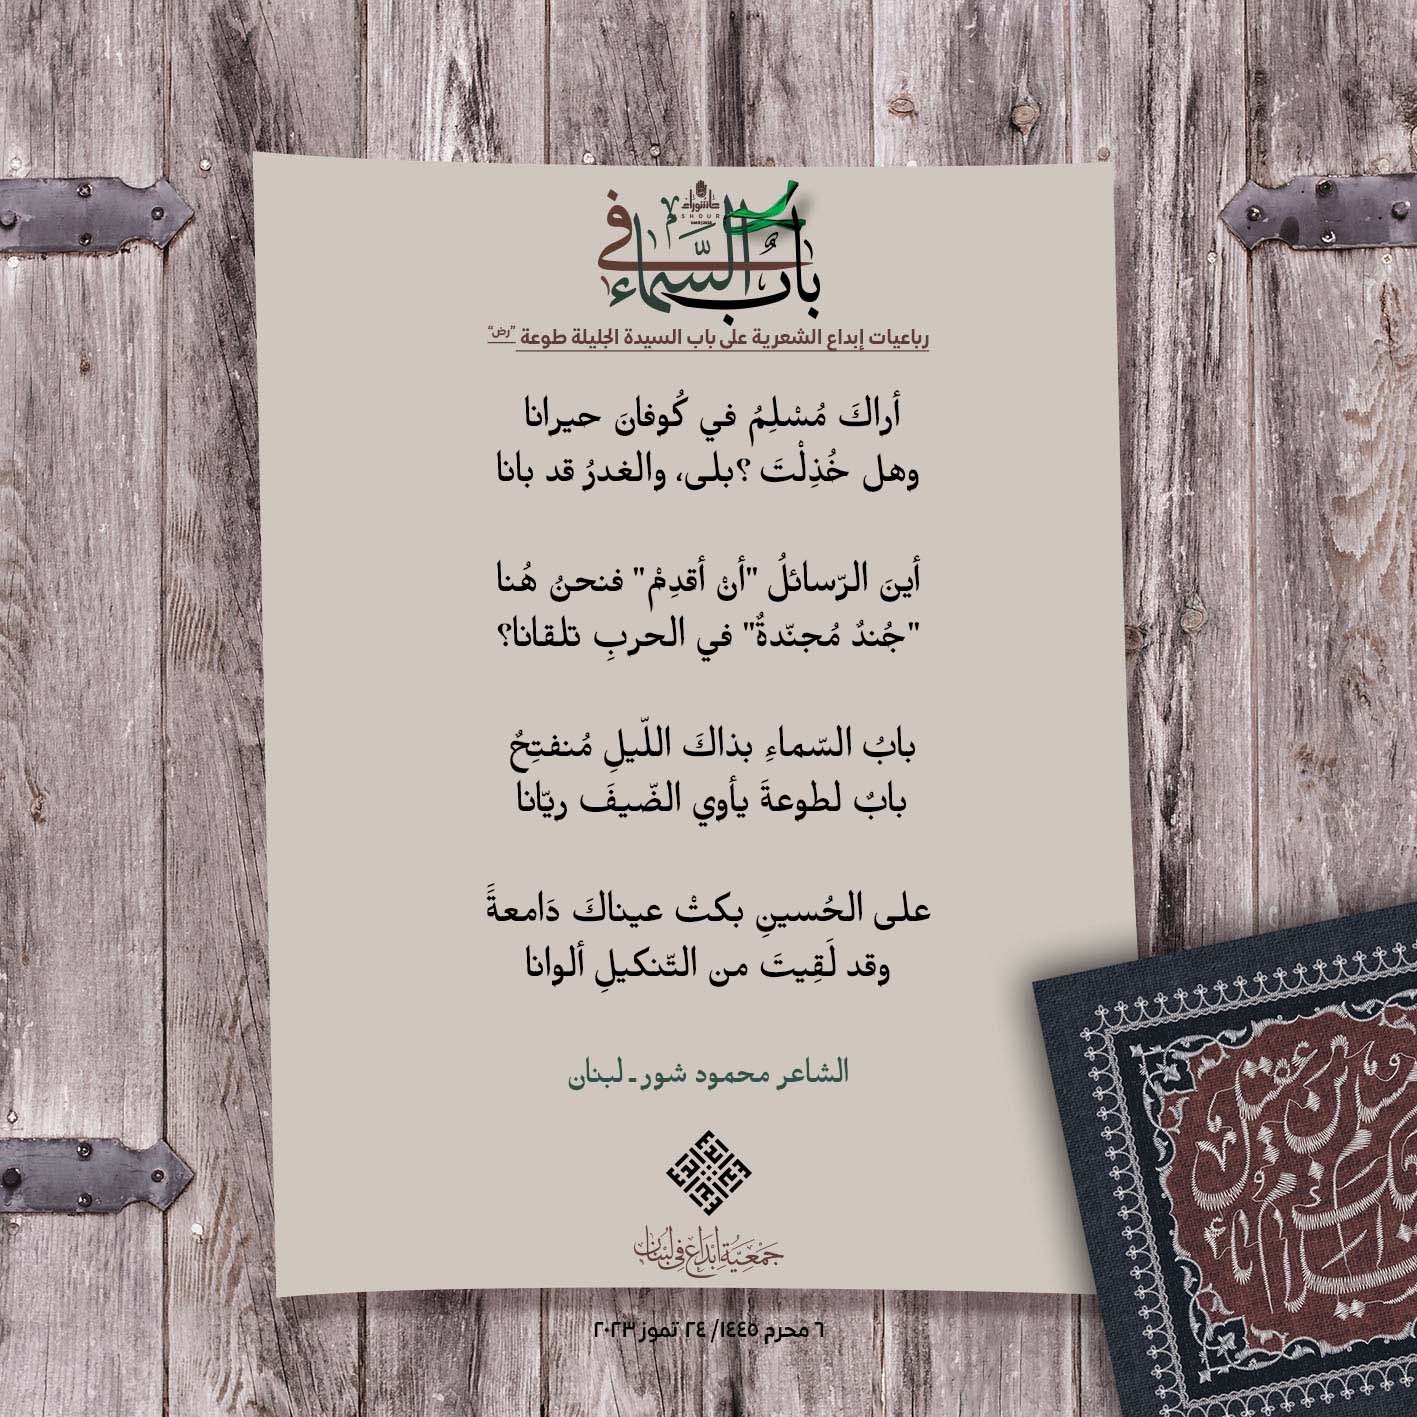 باب السماء
في
عاشوراء
رباعيات إبداع الشعرية على باب السيدة الجليلة طوعة "رض"
أراكَ مُسْلِمُ في كُوفانَ حيرانا
وهل خُذِلْتَ ؟بلى، والغدرُ قد بانا
أينَ الرّسائلُ "أنْ أقدِمْ" فنحنُ هُنا
"جُندٌ مُجنّدةٌ" في الحربِ تلقانا؟
بابُ السّماءِ بذاكَ اللّيلِ مُنفتِحٌ
بابٌ لطوعةَ يأوي الضّيفَ ريّانا
على الحُسينِ بكتْ عيناكَ دَامعةً
وقد لَقِيتَ من التّنكيلِ ألوانا
الشاعر محمود شور ـ لبنان
جمعية إبداع في لبنان
٦ محرم ١٤٤٥/ ٢٤ تموز ٢٠٢٣
السلام عليك يا
مسلم بن عقيل